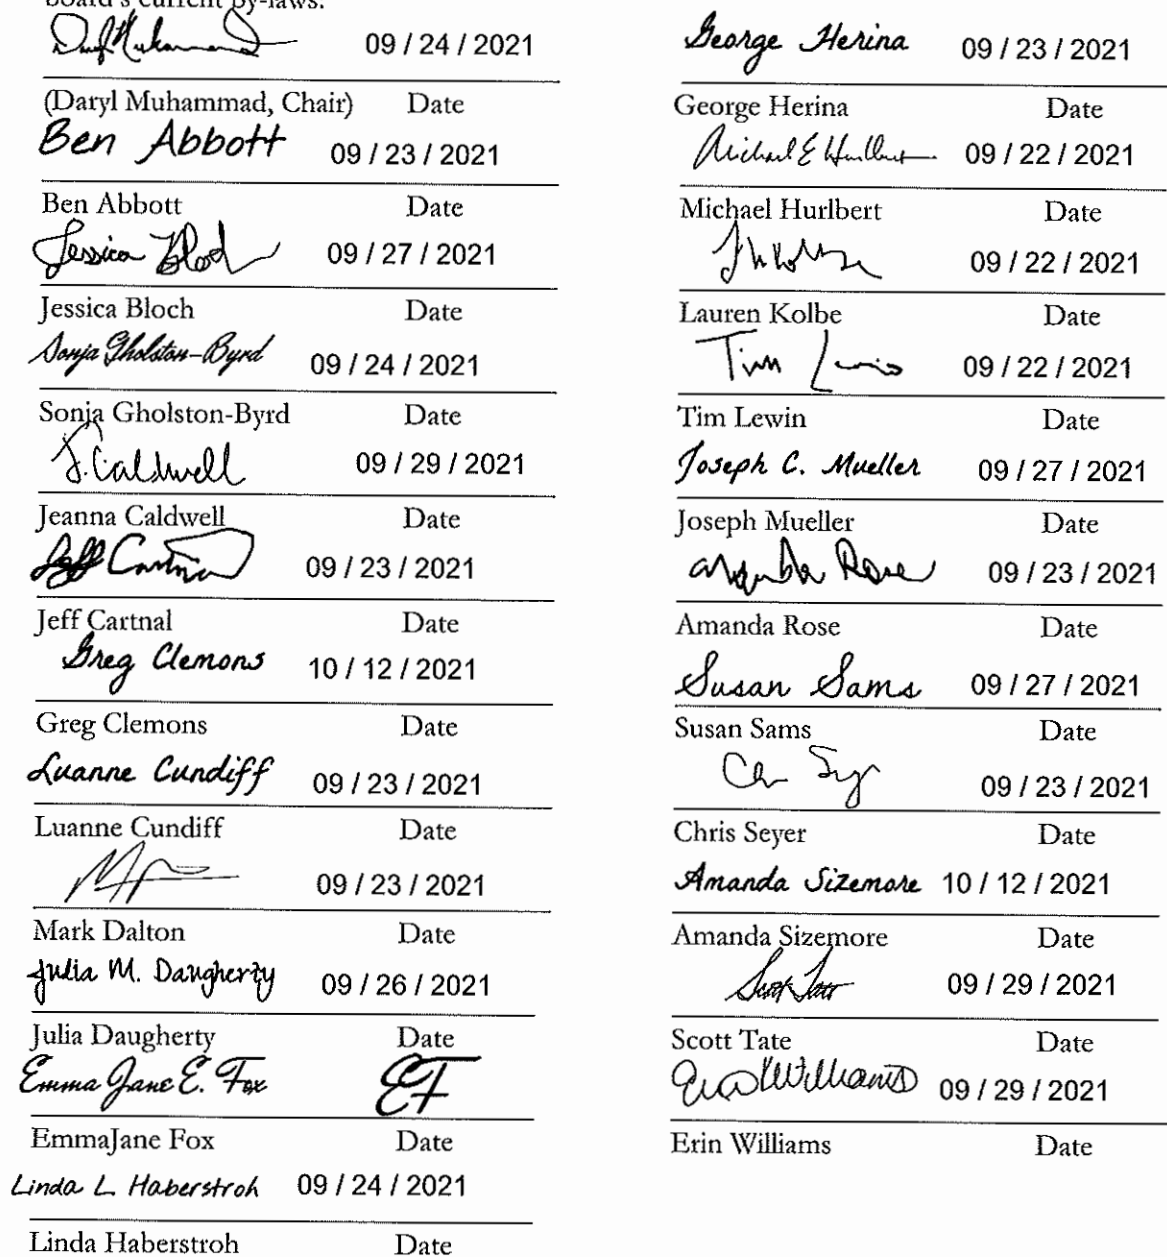 board's current by-laws.
09 / 24 / 2021
(Daryl Muhammad, Chair) Date
Ben Abbott 09 / 23 / 2021
Ben Abbott Date
Jessica Bloch 09 / 27 / 2021
Jessica Bloch Date
Sonja Gholston-Byrd 09 / 24 / 2021
Sonja Gholston-Byrd Date
J. Caldwell 09 / 29 / 2021
Jeanna Caldwell Date
Jeff Cartnal 09 / 23 / 2021
Jeff Cartnal Date
Greg Clemons 10 / 12 / 2021
Greg Clemons Date
Luanne Cundiff 09 / 23 / 2021
Luanne Cundiff Date
09 / 23 / 2021
Mark Dalton Date
Julia M. Daugherty 09 / 26 / 2021
Julia Daugherty Date
Emma Jane E. Fox EF
EmmaJane Fox Date
Linda L Haberstroh 09 / 24 / 2021
Linda Haberstroh Date
George Herina 09 / 23 / 2021
George Herina Date
Michael E Hurlbert 09 / 22 / 2021
Michael Hurlbert Date
09 / 22 / 2021
Lauren Kolbe Date
Tim 09 / 22 / 2021
Tim Lewin Date
Joseph C. Mueller 09 / 27 / 2021
Joseph Mueller Date
Amanda Rose 09 / 23 / 2021
Amanda Rose Date
Susan Sams 09 / 27 / 2021
Susan Sams Date
09 / 23 / 2021
Chris Seyer Date
Amanda Sizemore 10 / 12 / 2021
Amanda Sizemore Date
Scott Tate 09 / 29 / 2021
Scott Tate Date
Erin Williams 09 / 29 / 2021
Erin Williams Date